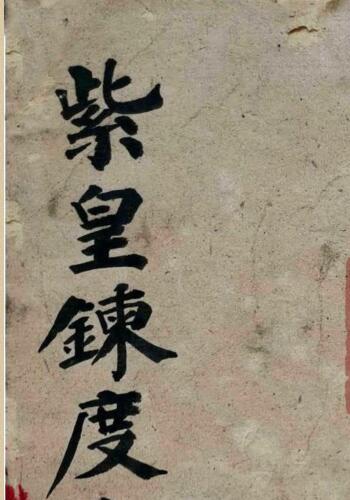 紫皇鍊度